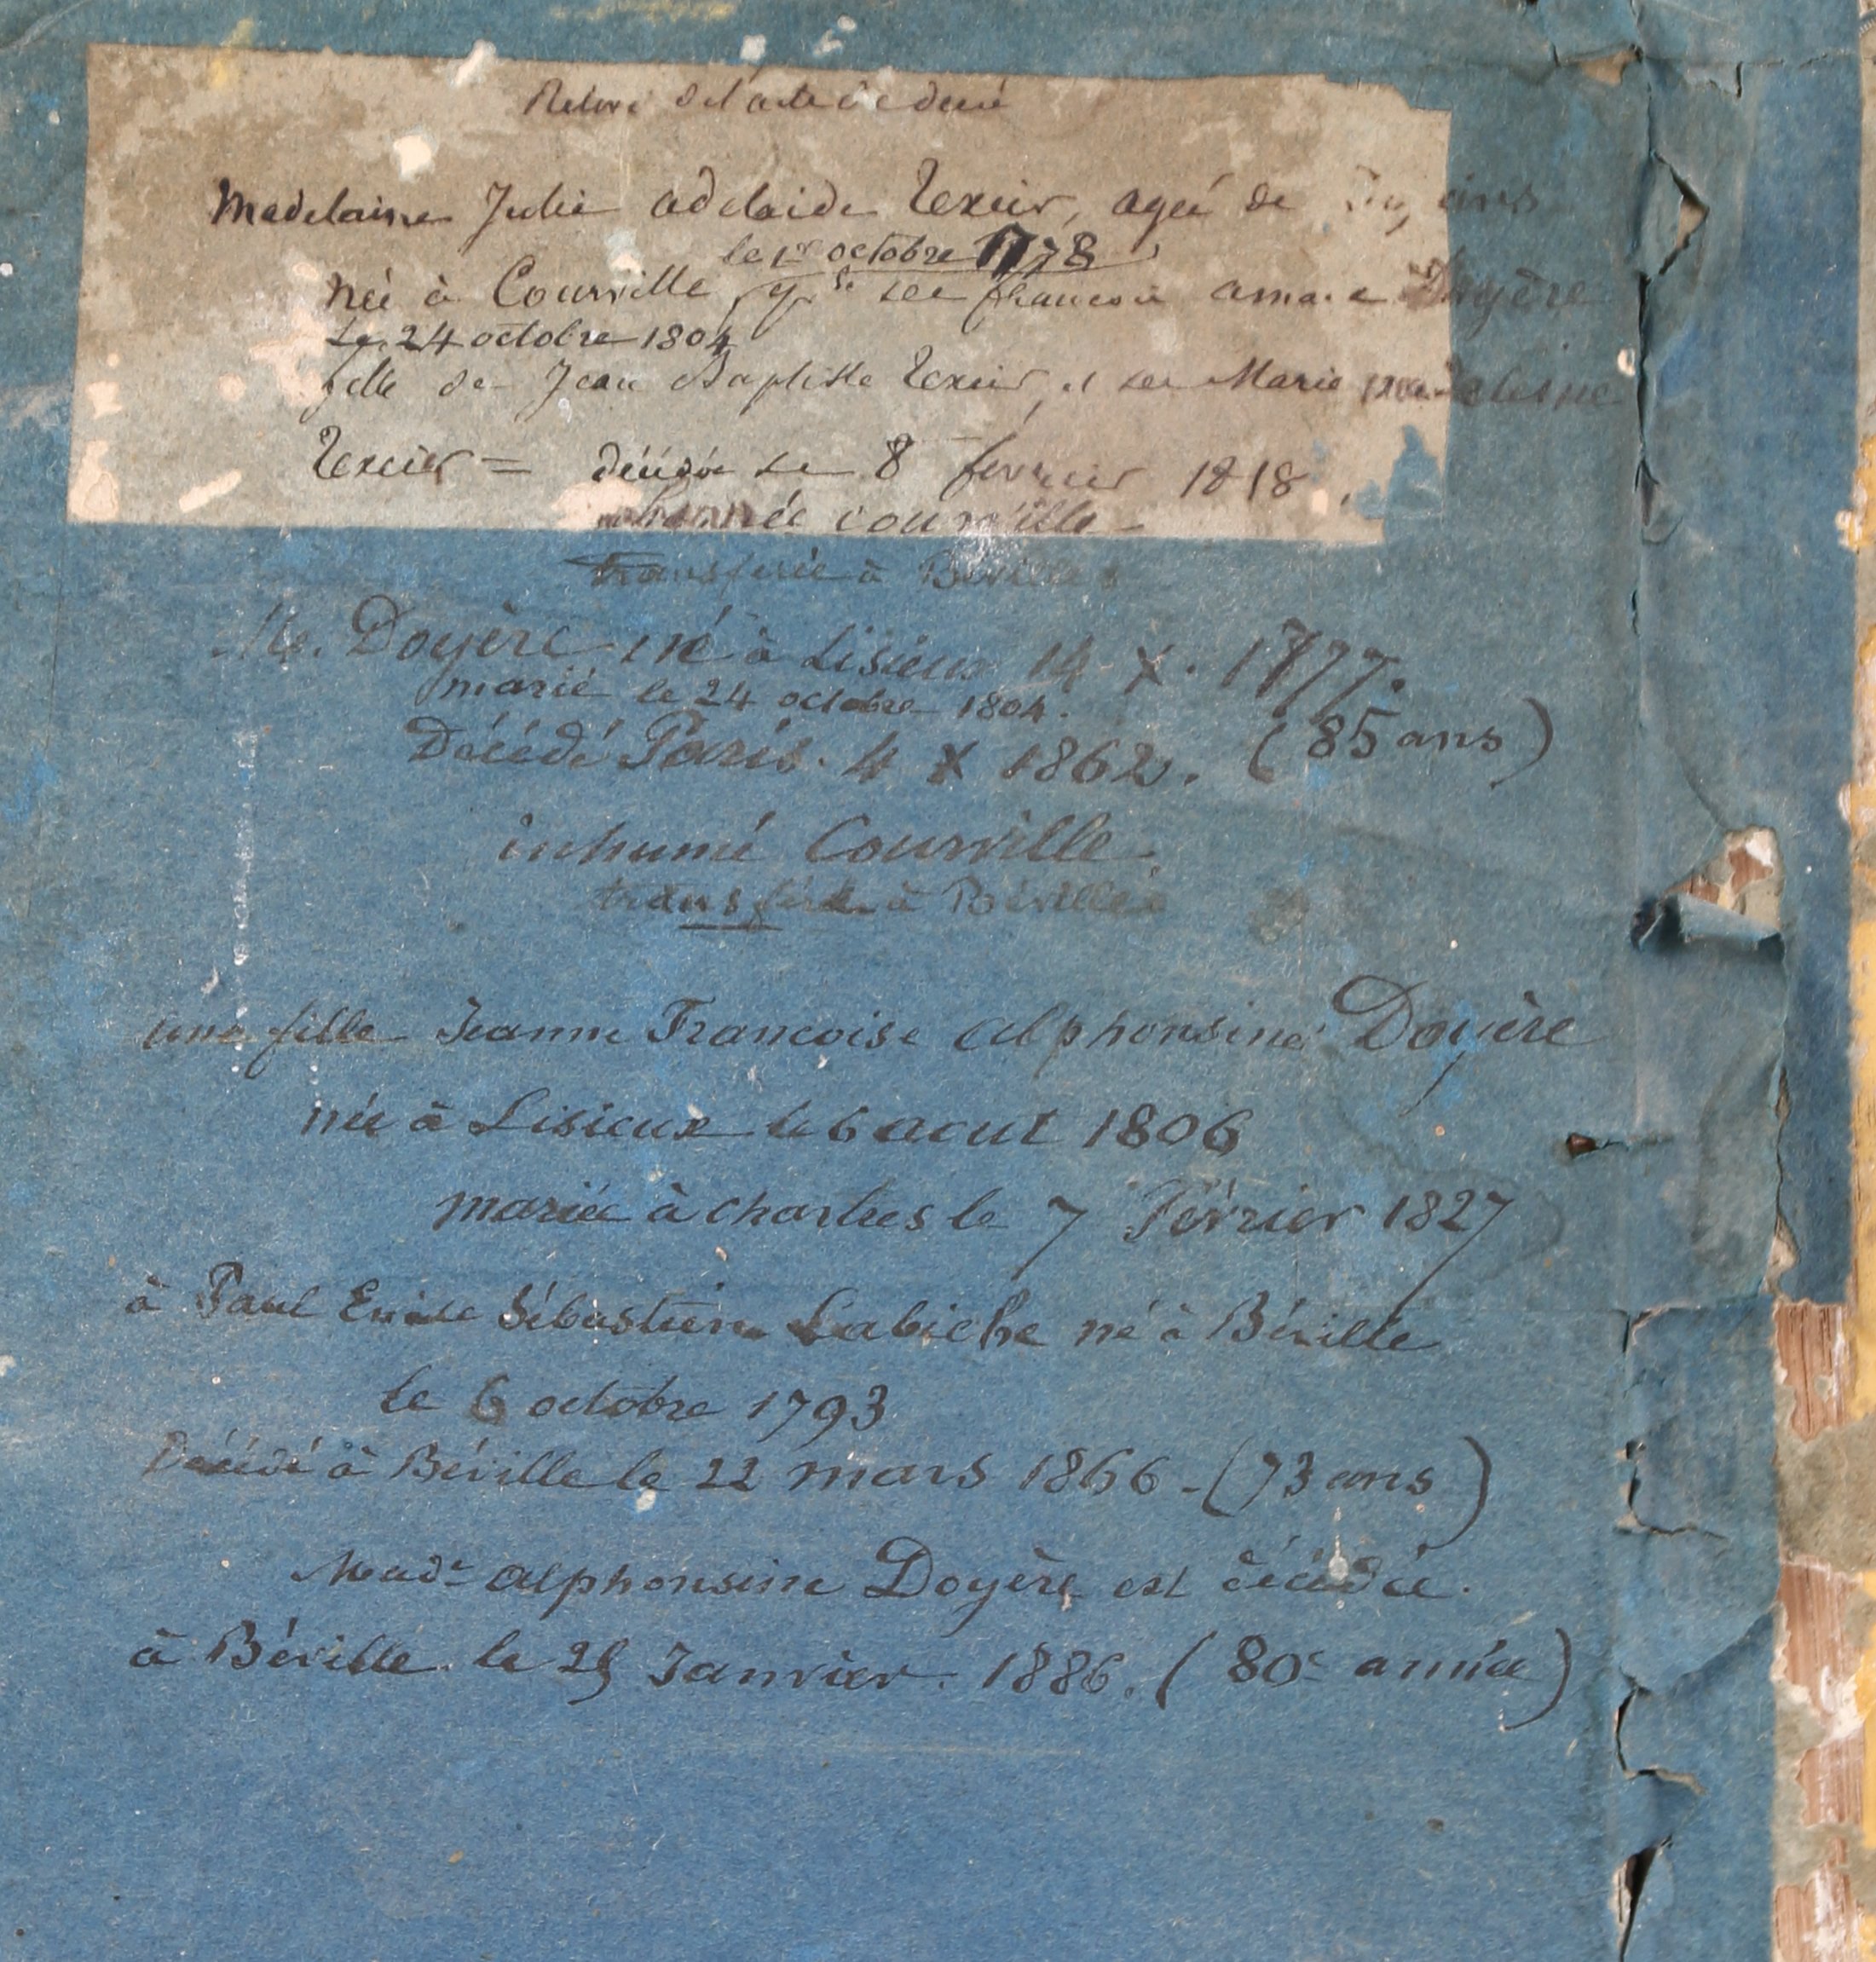 Relevé de l'acte de décès
Madelaine Julie adelaide Texier, agée de ans
le 1er octobre 1778
née à Courville, françois amant Doyère
Le 24 octobre 1804
fille de Jean Baptiste Texier, et de Marie madeleine
Texier = décédée le 8 fevrier 1818.
inhumée courville
transferée à Béville
Mr. Doyère né à Lisieux 14 X. 1777.
marié le 24 octobre 1804.
Décédé Paris. 4 X 1862. (85 ans)
inhumé Courville.
transféré à Béville
une fille Jeanne Francoise alphonsine Doyère
née à Lisieux le 6 aout 1806
mariée à chartres le 7 Février 1827
à Paul Emile Sébastien Labiche né à Béville
le 6 octobre 1793
Décédé à Béville le 22 mars 1866 - (73 ans)
Made alphonsine Doyère est décédée.
à Béville. le 25 Janvier. 1886. (80e année)